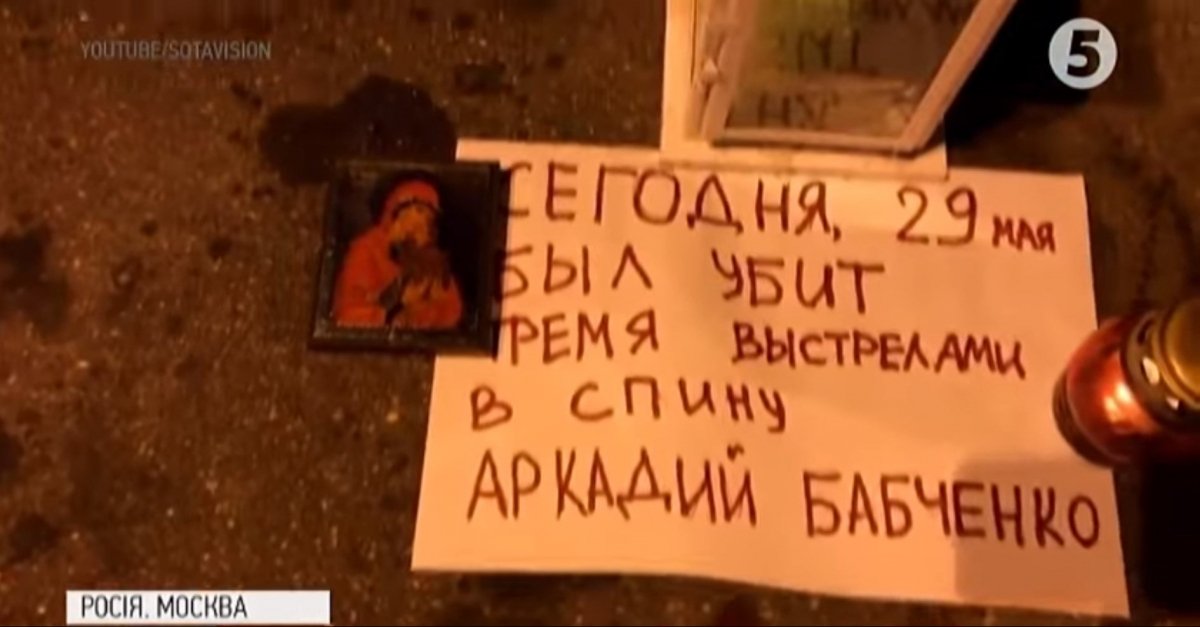 YOUTUBE/SOTAVISION
5
СЕГОДНЯ, 29 МАЯ
БЫЛ УБИТ
ТРЕМЯ ВЫСТРЕЛАМИ
В СПИНУ
АРКАДИЙ БАБЧЕНКО
РОСІЯ. МОСКВА